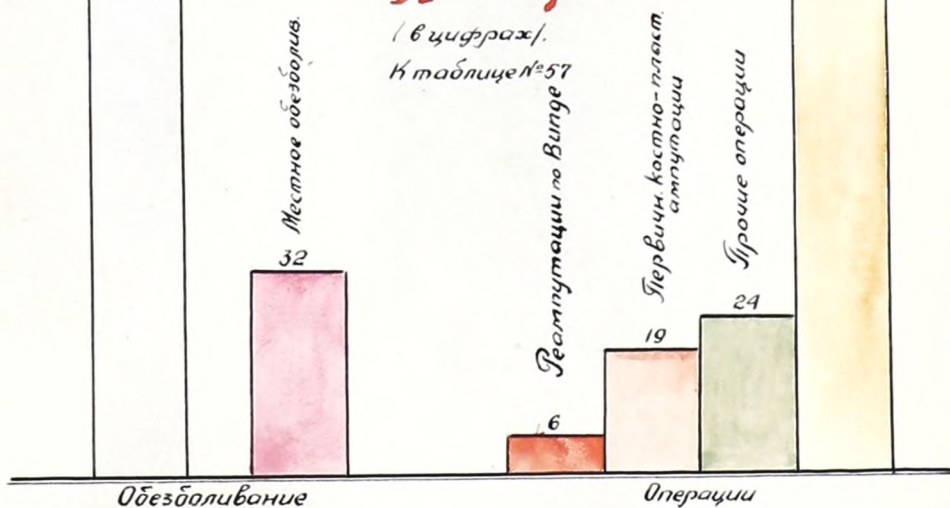 (в цифрах).
К таблице №57
Местное обезболив.
32
Реампутации по Випде
6
Первичн. костно-пласт.
ампутации
19
Прочие операции
24
Обезболивание
Операции